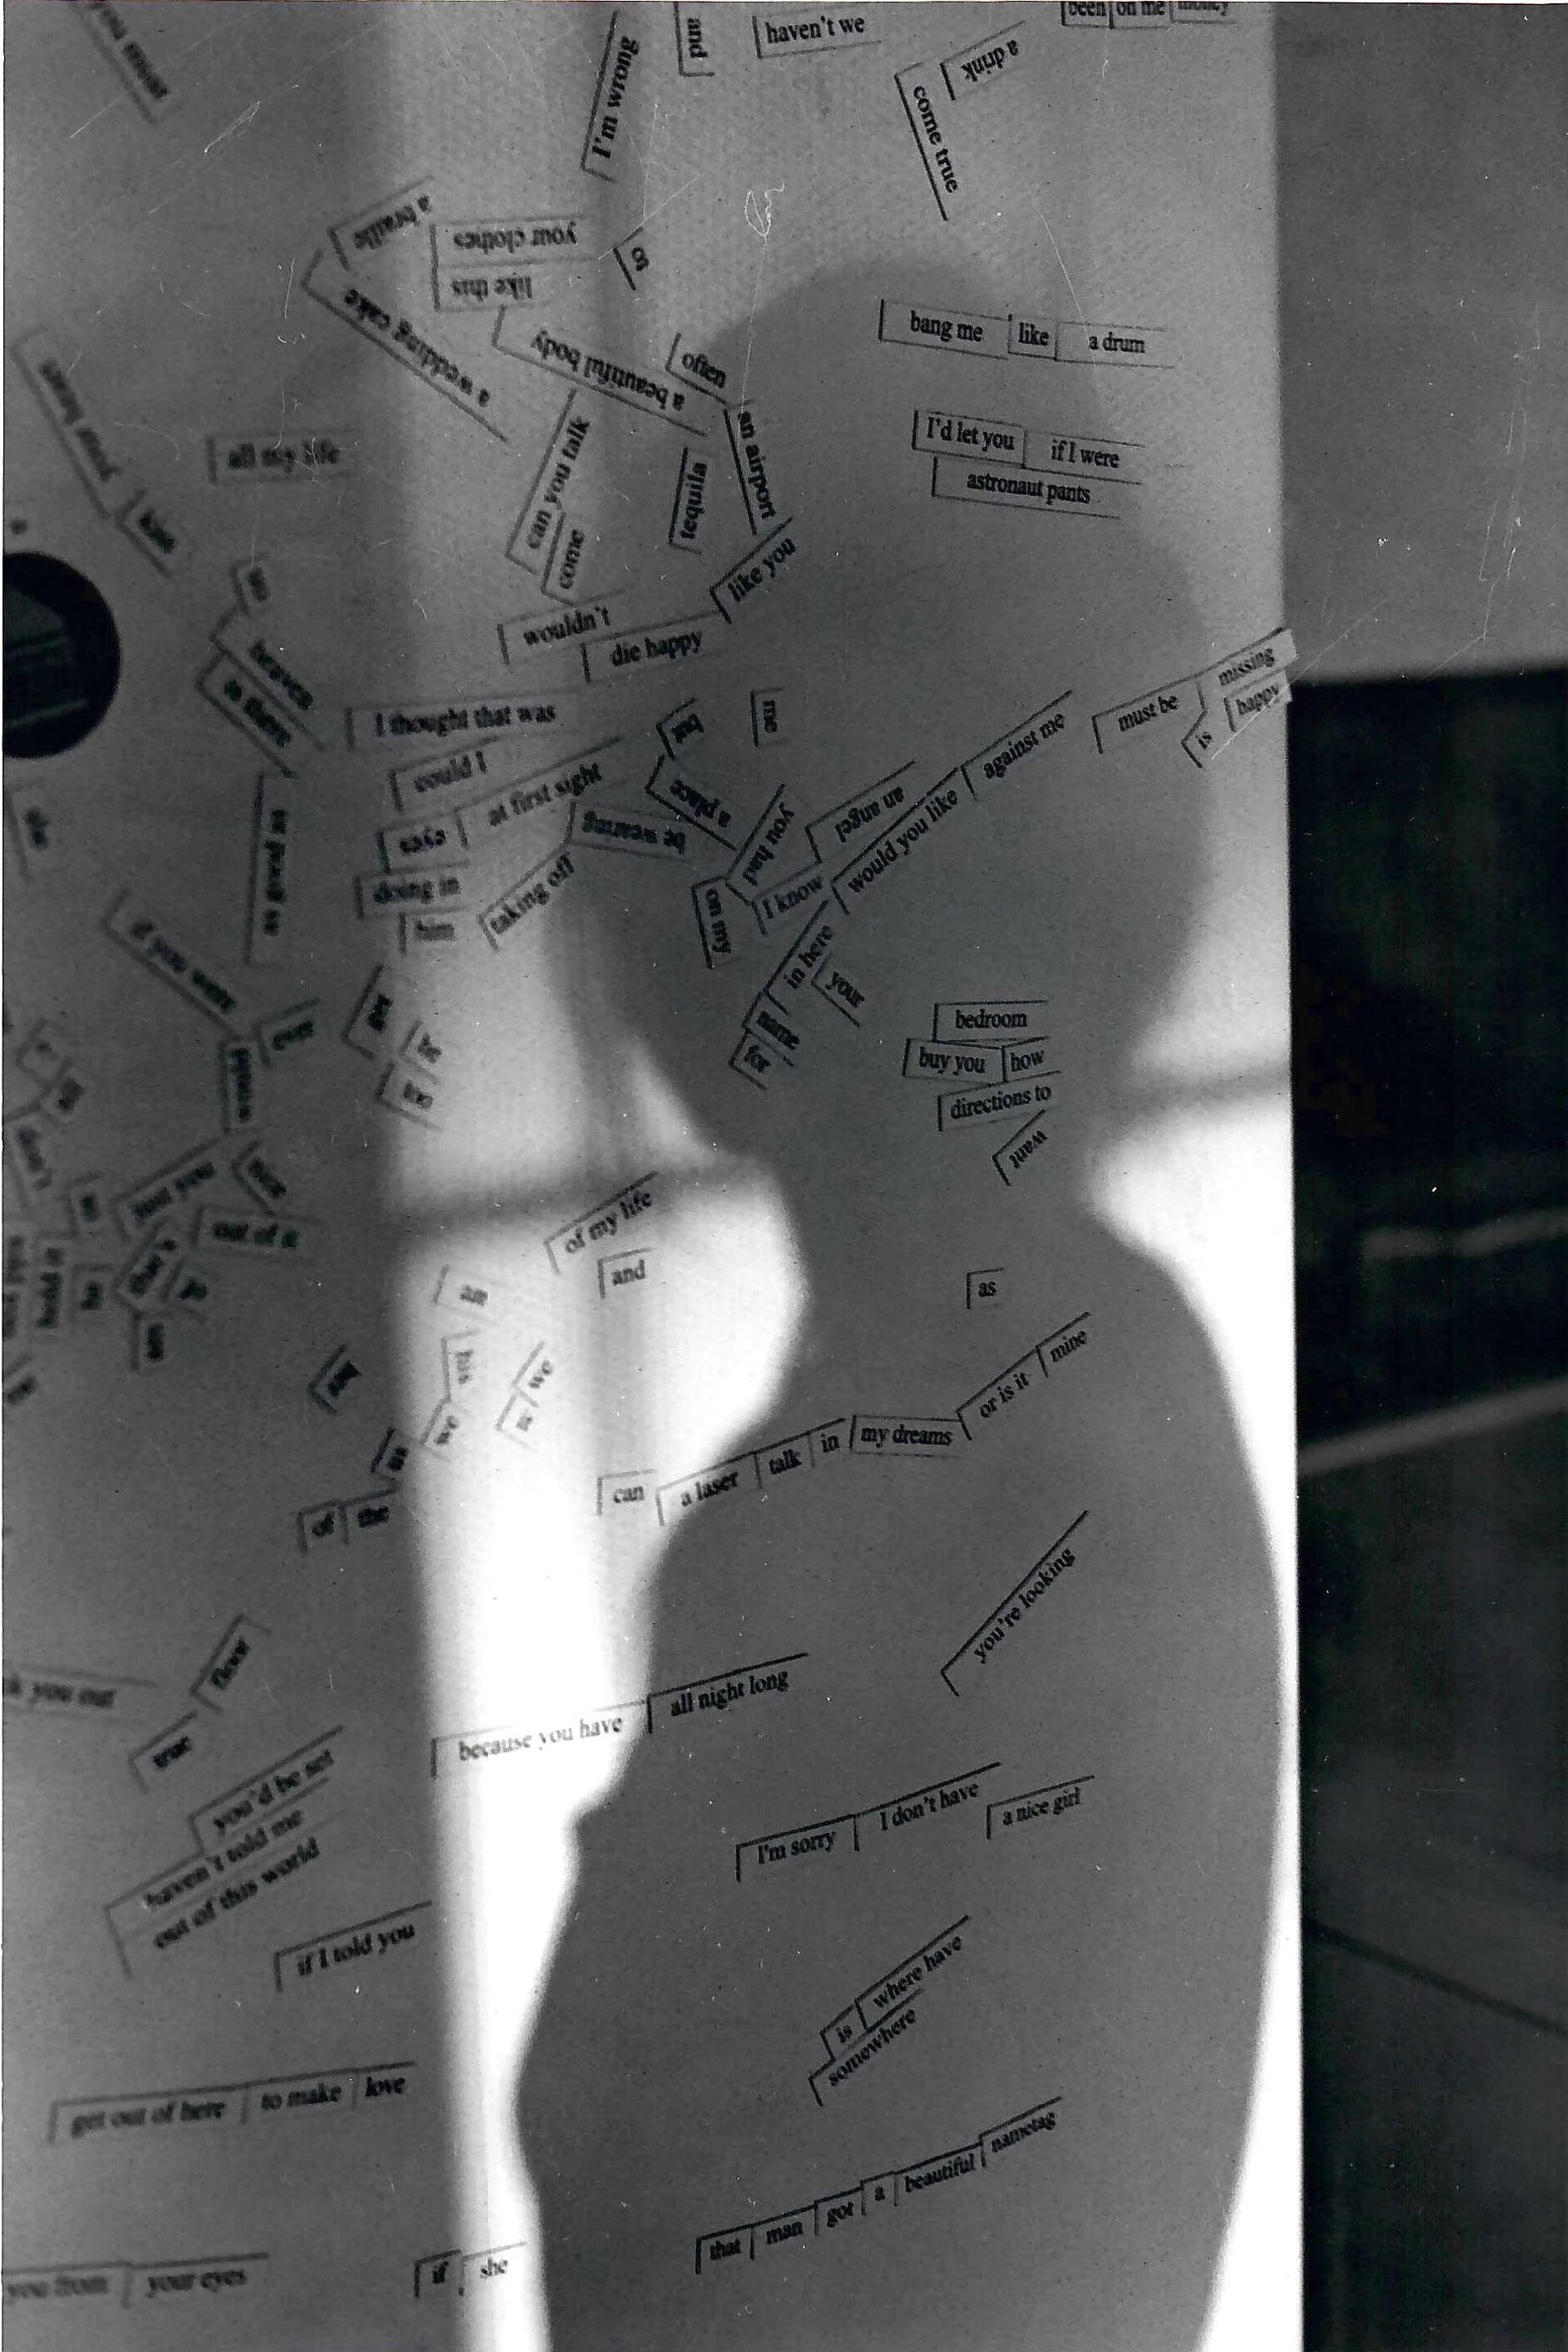 been on me money
haven't we
and
I'm wrong
a drink
come true
a braille
your clothes
like this
a wedding cake
a beautiful body
often
bang me like a drum
an airport
I'd let you if I were
astronaut pants
all my life
your heart
sex
can you talk
come
tequila
like you
wouldn't
die happy
heaven
missing
must be
is happy
I thought that was
me
but
against me
could I
at first sight
eyes
a place
be wearing
you had
an angel
would you like
as good as
doing in
him
taking off
I know
on my
she
if you saw
in here
your
bedroom
buy you how
directions to
want
don't
hurt you
out of it
hold it
of my life
and
as
his
we
we
us
mine
or is it
can a laser talk in my dreams
of the
you're looking
floor
k you out
true
because you have all night long
you'd be set
haven't told me
out of this world
I'm sorry I don't have
a nice girl
if I told you
is where have
somewhere
get out of here to make love
that man got a beautiful nametag
you from your eyes
if she